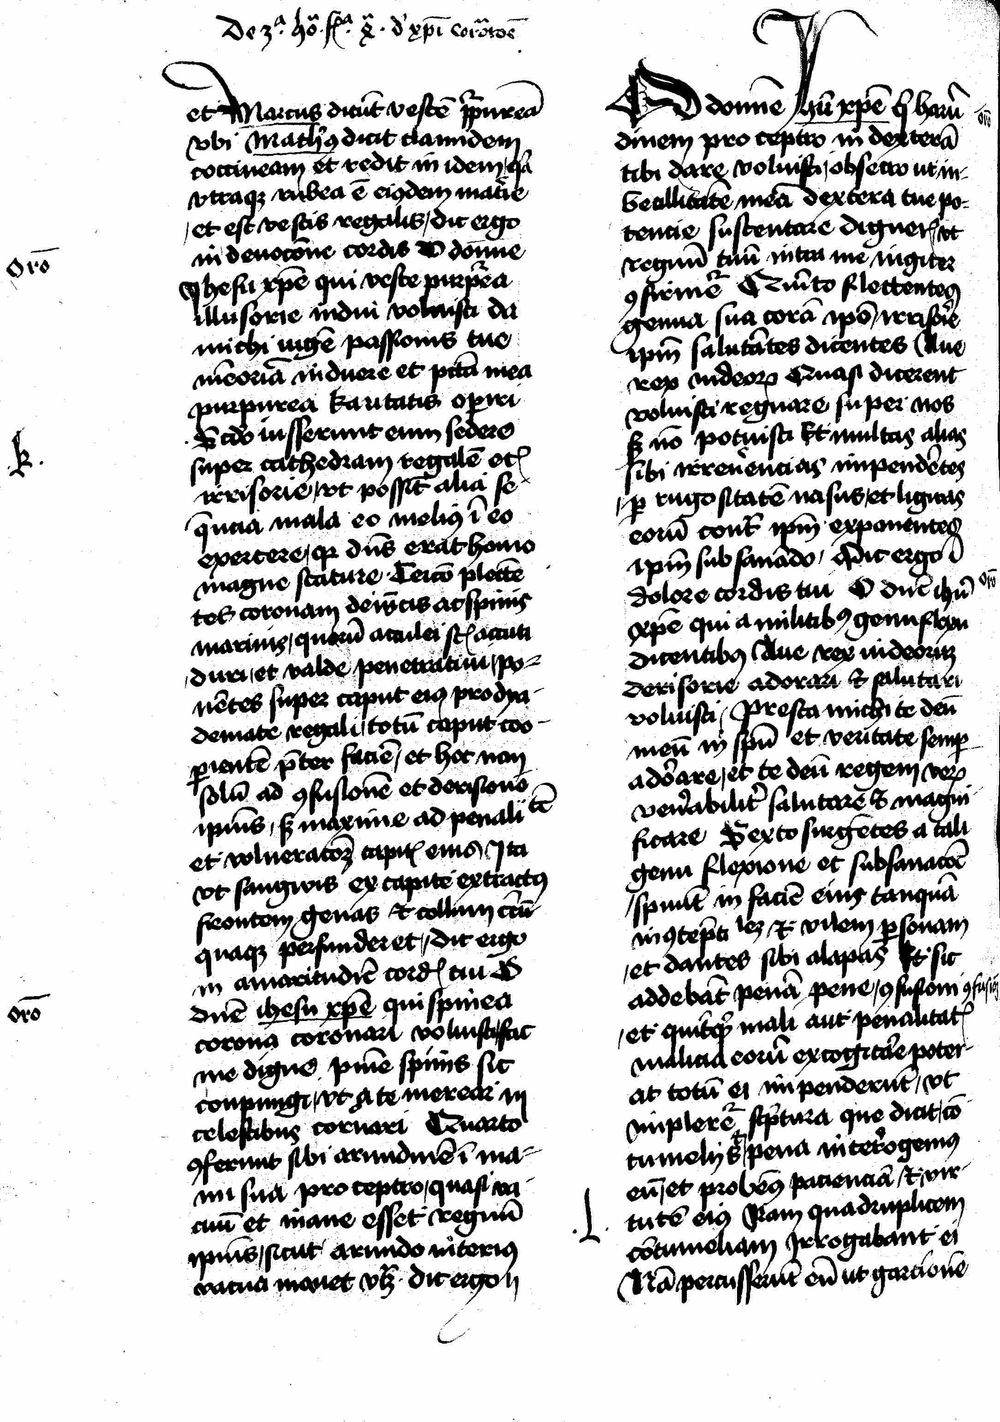 De 3ª hoª fˢᵃ xª d' xpi Coroᵃtoē
et Marcus dicūt vestē ꝓpuream
vbi Mathꝰ dicit clamidem
coccineam et redit in idem qꝛ
vtraqꝫ rubea ē eiusdem materie
et est vestis regalis dic ergo
in deuocōne cordis O domne
Jhesu xpē qui veste purp̄ea
illusorie indui voluisti da
michi iugē passionis tue
memoriā induere et vitā mea
purpurea karitatis operiri
Scdo iusserunt eum sedere
super cathedram regalē etc
irrisorie vt possīt alia se
q̄ncia mala eo meliꝰ ī eo
exercere qꝛ dn̄s erat homo
magne stature Tercio plecten
tes coronam de iuncis ac spinis
marinis quorū aculei sūt acuti
duri et valde penetratiui po-
nētes super caput eiꝰ pro dya-
demate regali totū caput coo-
ꝑientē preter faciē et hoc non
solū ad ꝯfusionē et derisionē
ipius sꝫ maxime ad penalitē
et vulneracōꝫ capitis eius Ita
vt sanguis ex capite extractus
frontem genas et collum circū
quaqꝫ perfunderet dic ergo
in amaritudīe cordis tui O
dn̄e ihesu xpē qui spinea
corona coronari voluisti fac
me digne pn̄ie spinis sic
conpungi vt a te merear in
celestibus coronari Quarto
ꝯferunt sibi arundinē ī ma-
nu sua pro ceptro quasi va
cuū et inane esset regnū
ipius sicut arundo interius
vacua manet vtꝫ dic ergo
O domne Ihū xpē qui harū
dinem pro ceptro in dexterā
tibi dare voluisti obsecro ut in-
becillitatē meā dextera tue po-
tencie sustentare digneris vt
regnū tuū intra me iugiter
ꝯfirmēt Quīto flectentes
genua sua corā ipō irrisorie
ipm̄ salutātes dicentes Aue
rex iudeoꝝ Quasi dicerent
voluisti regnare super nos
sꝫ nō potuisti Et multas alias
sibi irreuēncias impendētes
per rugositatē nasus et linguas
eorū contᵃ ipm̄ exponentes
ipm̄ subsanādo Dic ergo ī
dolore cordis tui O dn̄e ihū
xpē qui a militibꝰ genuflexu
dicentibꝰ Aue rex iudeorum
derisorie adorari et salutari
voluisti Presta michi te deū
meū in spū et veritate semꝑ
adorare et te deū regem verū
venerabiliter salutare et magni
ficare Sexto surgētes a tali
genu flexione et subsanacōe
spuūt in faciē eius tanquā
in ꝯtēptilez et vilem ꝑsonam
et dantes sibi alapas Et sic
addebāt penā pene ꝯfusioni ꝯfusioi
et quitqꝫ mali aut penalitatis
malicia eorū excogitare poter-
at totū ei impenderūt vt
implerēt scriptura que dicit cō
tumelijs et pena interrogemus
eū et probemꝰ pacienciā et vir
tutē eius Nam quadruplicem
cōtumeliam Irrogabant ei
Nā percusserūt eū ut garcionē
Oro
k.
Oro
Oro
Oro
.l.